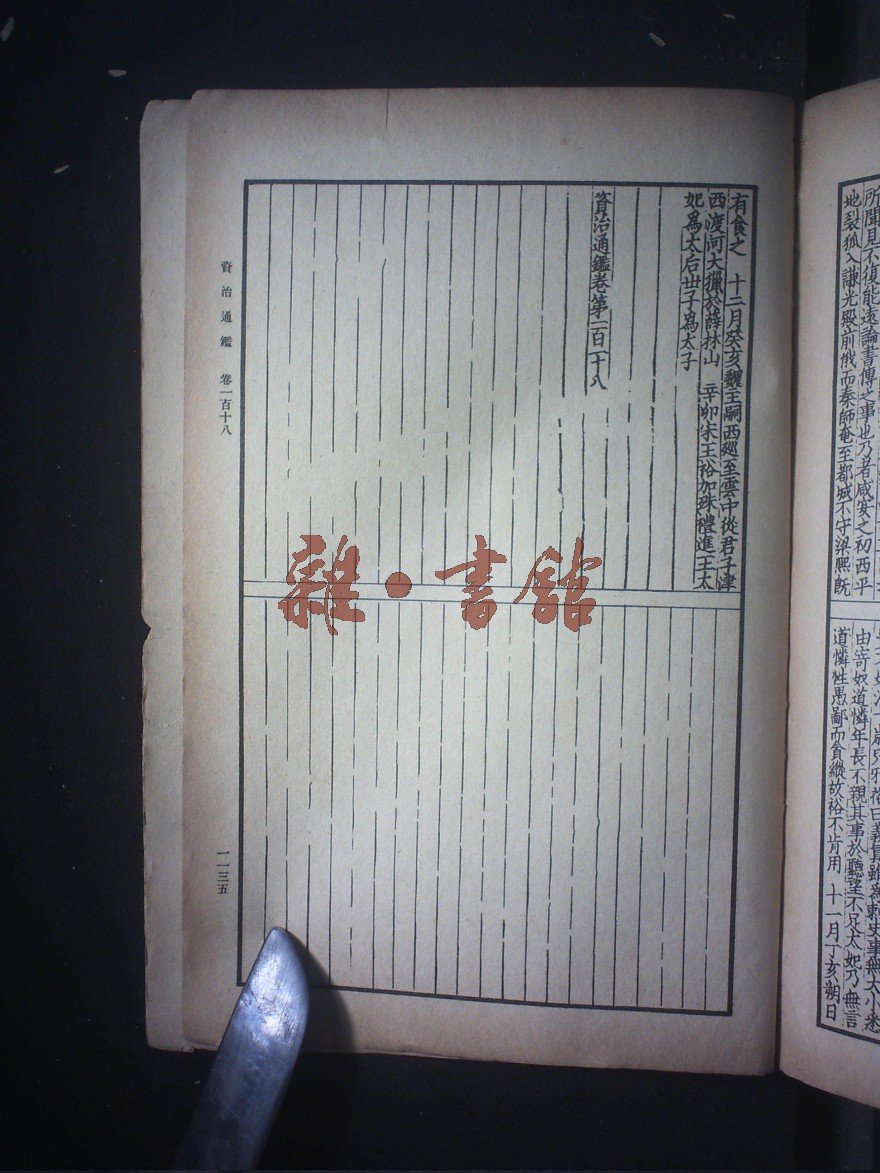 所聞見不復能遠論書傳之事也乃者咸安之初西平
地裂狐入謙光殿前俄而秦師奄至都城不守梁熙既
道憐性愚鄙而貪縱故裕不肯用 十一月丁亥朔日
由寄奴道憐年長不親其事於聽望不足太妃乃無言
有食之 十二月癸亥魏主嗣西巡至雲中從君子津
西渡河大獵於薛林山 辛卯宋王裕加殊禮進王太
妃爲太后世子爲太子
資治通鑑卷第一百一十八
資治通鑑 卷一百十八
一一三五
雜·書館